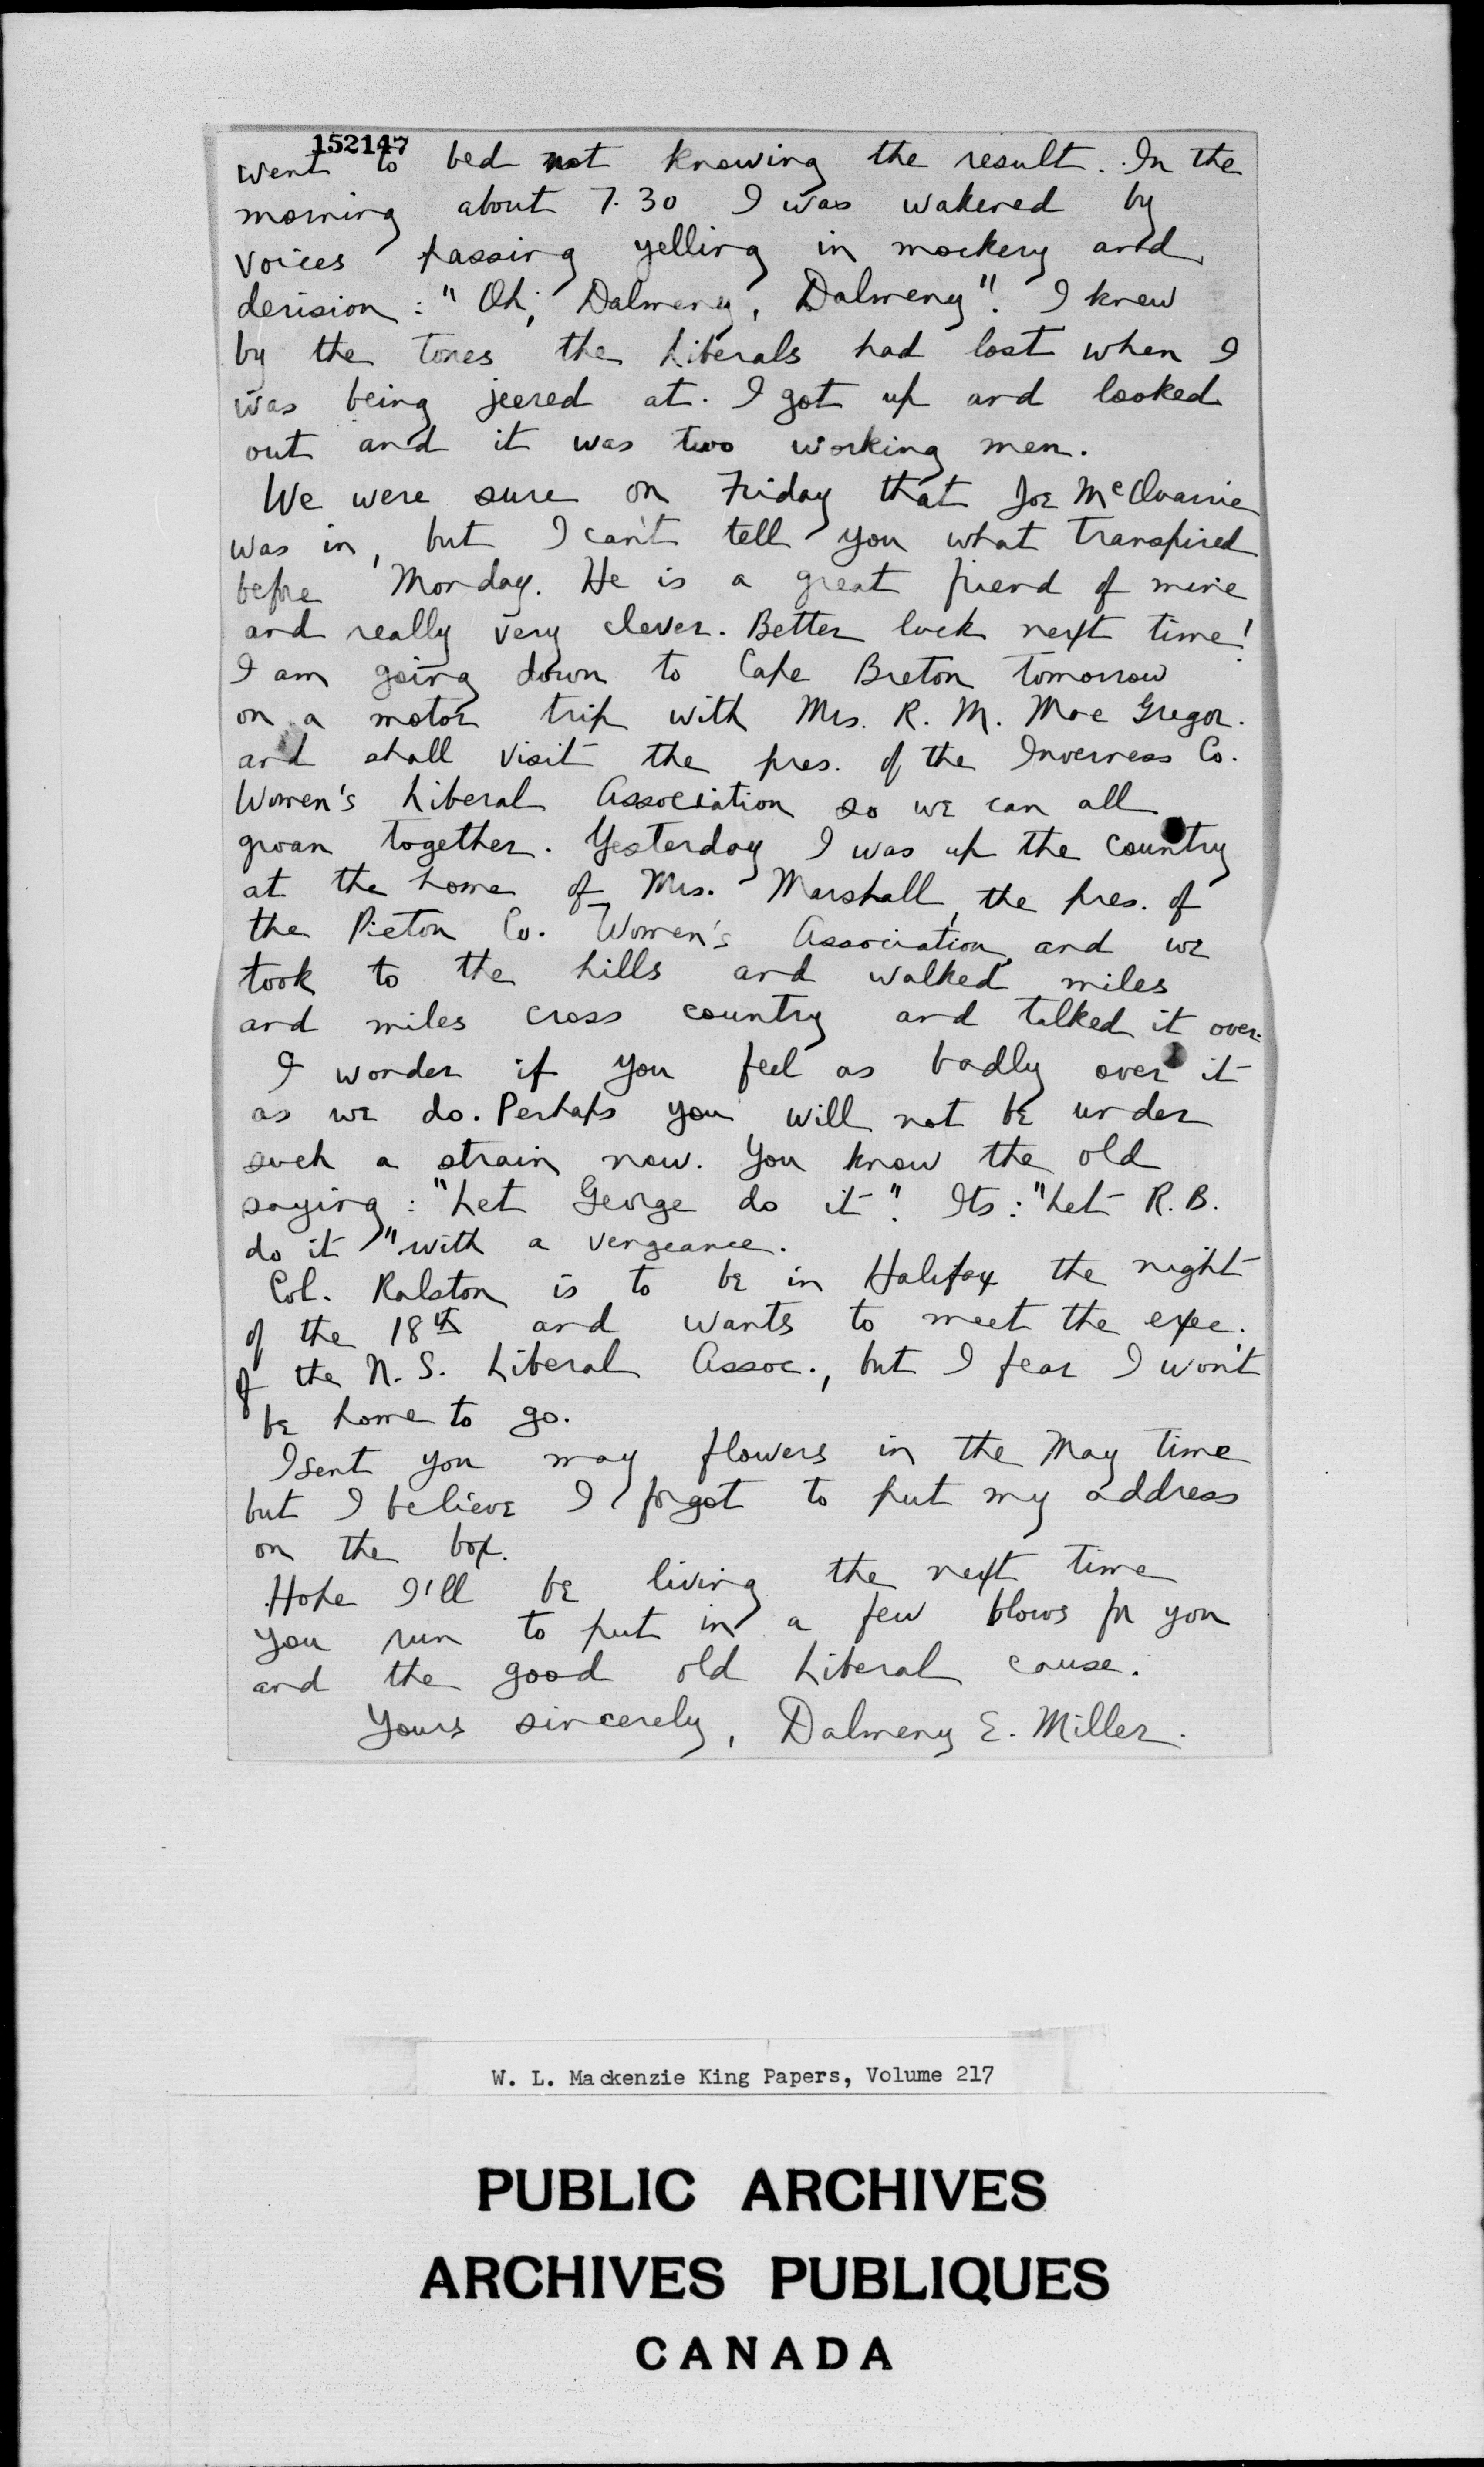 152147
went to bed not knowing the result. In the
morning about 7.30 I was wakened by
voices passing yelling in mockery and
derision: "Oh, Dalmeny, Dalmeny". I knew
by the tones the Liberals had lost when I
was being jeered at. I got up and looked
out and it was two working men.
We were sure on Friday that Joe McQuarrie
was in, but I can't tell you what transpired
before Monday. He is a great friend of mine
and really very clever. Better luck next time!
I am going down to Cape Breton tomorrow
on a motor trip with Mrs. R. M. Mac Gregor.
and shall visit the pres. of the Inverness Co.
Women's Liberal Association so we can all
groan together. Yesterday I was up the country
at the home of Mrs. Marshall, the pres. of
the Pictou Co. Women's Association, and we
took to the hills and walked miles
and miles cross country and talked it over.
I wonder if you feel as badly over it
as we do. Perhaps you will not be under
such a strain now. You know the old
saying: "Let George do it". Its: "Let R.B.
do it" with a vengeance.
Col. Ralston is to be in Halifax the night
of the 18th and wants to meet the exec.
of the N.S. Liberal Assoc., but I fear I won't
be home to go.
I sent you may flowers in the May time
but I believe I forgot to put my address
on the box.
Hope I'll be living the next time
you run to put in a few blows for you
and the good old Liberal cause.
Yours sincerely, Dalmeny E. Miller.
W. L. Mackenzie King Papers, Volume 217
PUBLIC ARCHIVES
ARCHIVES PUBLIQUES
CANADA